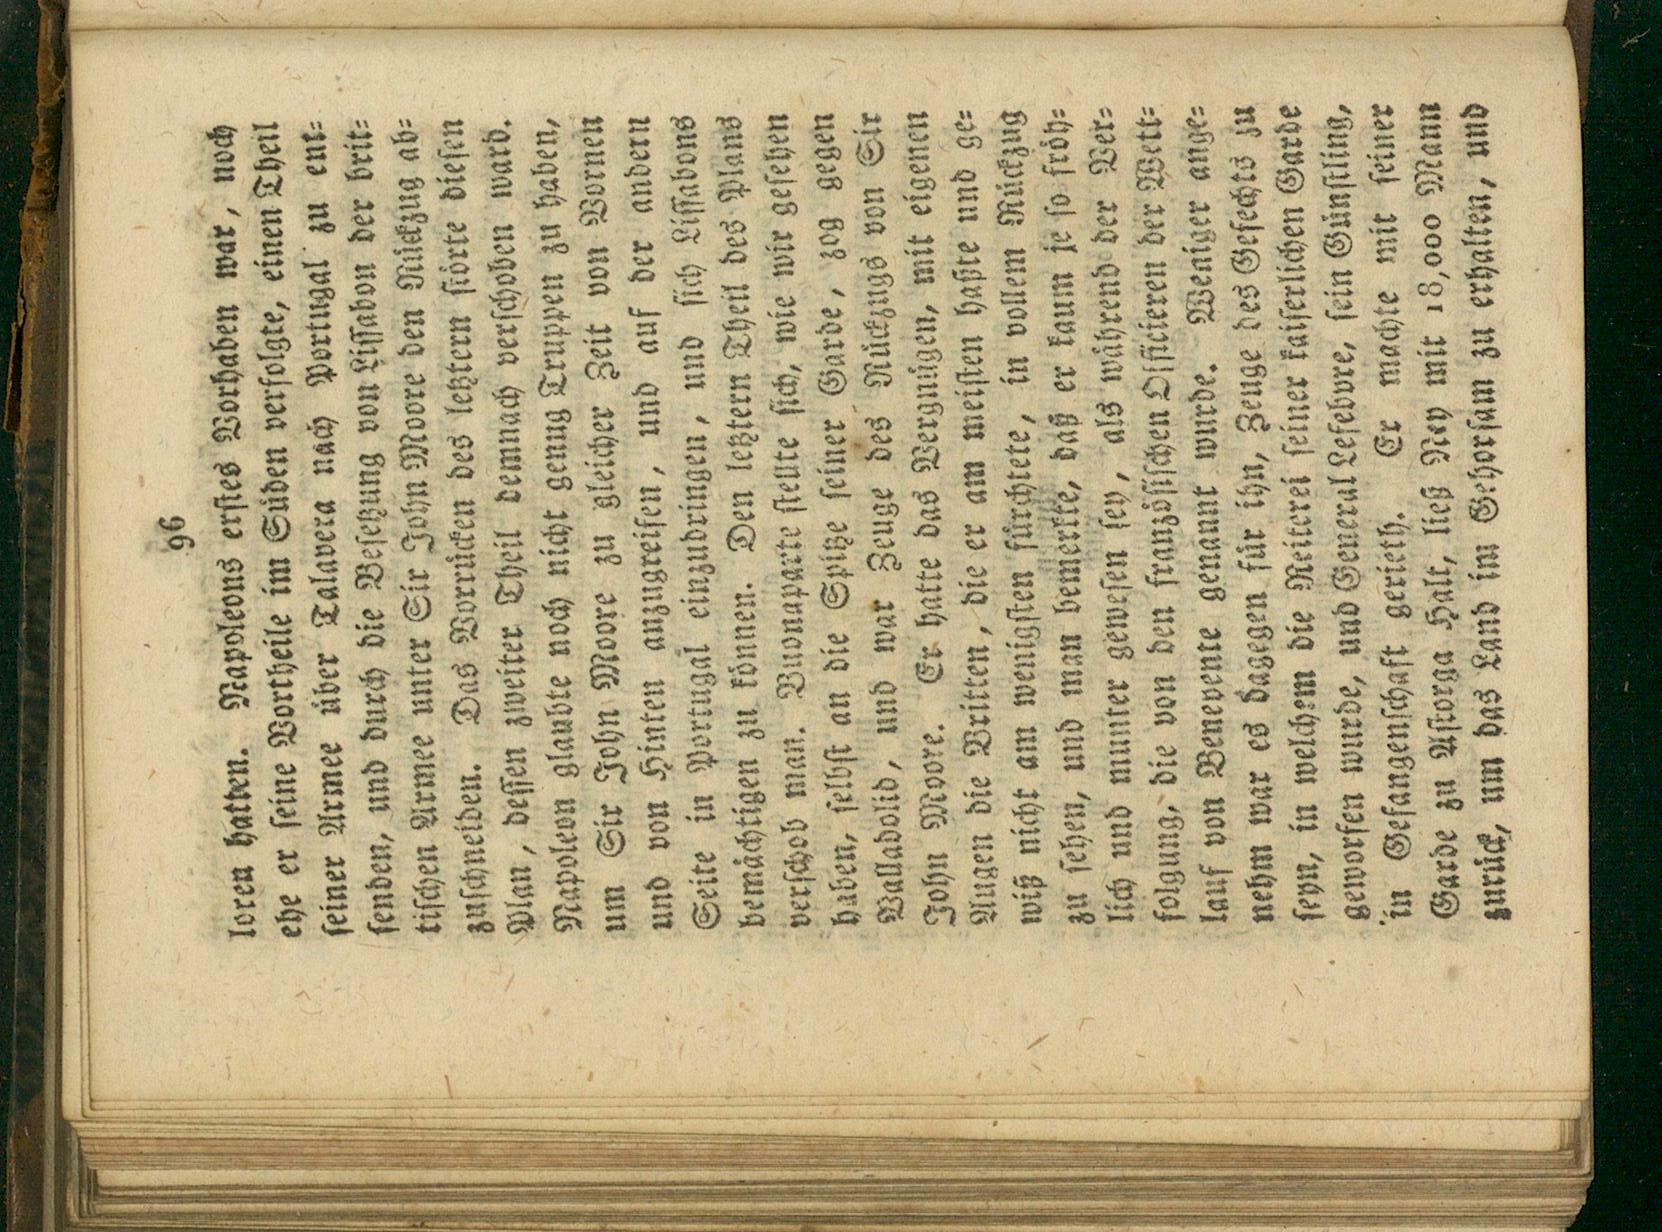 96
loren hatten. Napoleons erstes Vorhaben war, noch
ehe er seine Vortheile im Süden verfolgte, einen Theil
seiner Armee über Talavera nach Portugal zu ent-
senden, und durch die Besetzung von Lissabon der brit-
tischen Armee unter Sir John Moore den Rückzug ab-
zuschneiden. Das Vorrücken des letztern störte diesen
Plan, dessen zweiter Theil demnach verschoben ward.
Napoleon glaubte noch nicht genug Truppen zu haben,
um Sir John Moore zu gleicher Zeit von Vornen
und von Hinten anzugreifen, und auf der andern
Seite in Portugal einzudringen, und sich Lissabons
bemächtigen zu können. Den letztern Theil des Plans
verschob man. Buonaparte stellte sich, wie wir gesehen
haben, selbst an die Spitze seiner Garde, zog gegen
Valladolid, und war Zeuge des Rückzugs von Sir
John Moore. Er hatte das Vergnügen, mit eigenen
Augen die Britten, die er am meisten haßte und ge-
wiß nicht am wenigsten fürchtete, in vollem Rückzug
zu sehen, und man bemerkte, daß er kaum je so fröh-
lich und munter gewesen sey, als während der Ver-
folgung, die von den französischen Officieren der Wett-
lauf von Benevente genannt wurde. Weniger ange-
nehm war es dagegen für ihn, Zeuge des Gefechts zu
seyn, in welchem die Reiterei seiner kaiserlichen Garde
geworfen wurde, und General Lefebvre, sein Günstling,
in Gefangenschaft gerieth. Er machte mit seiner
Garde zu Astorga Halt, ließ Ney mit 18,000 Mann
zurück, um das Land im Gehorsam zu erhalten, und